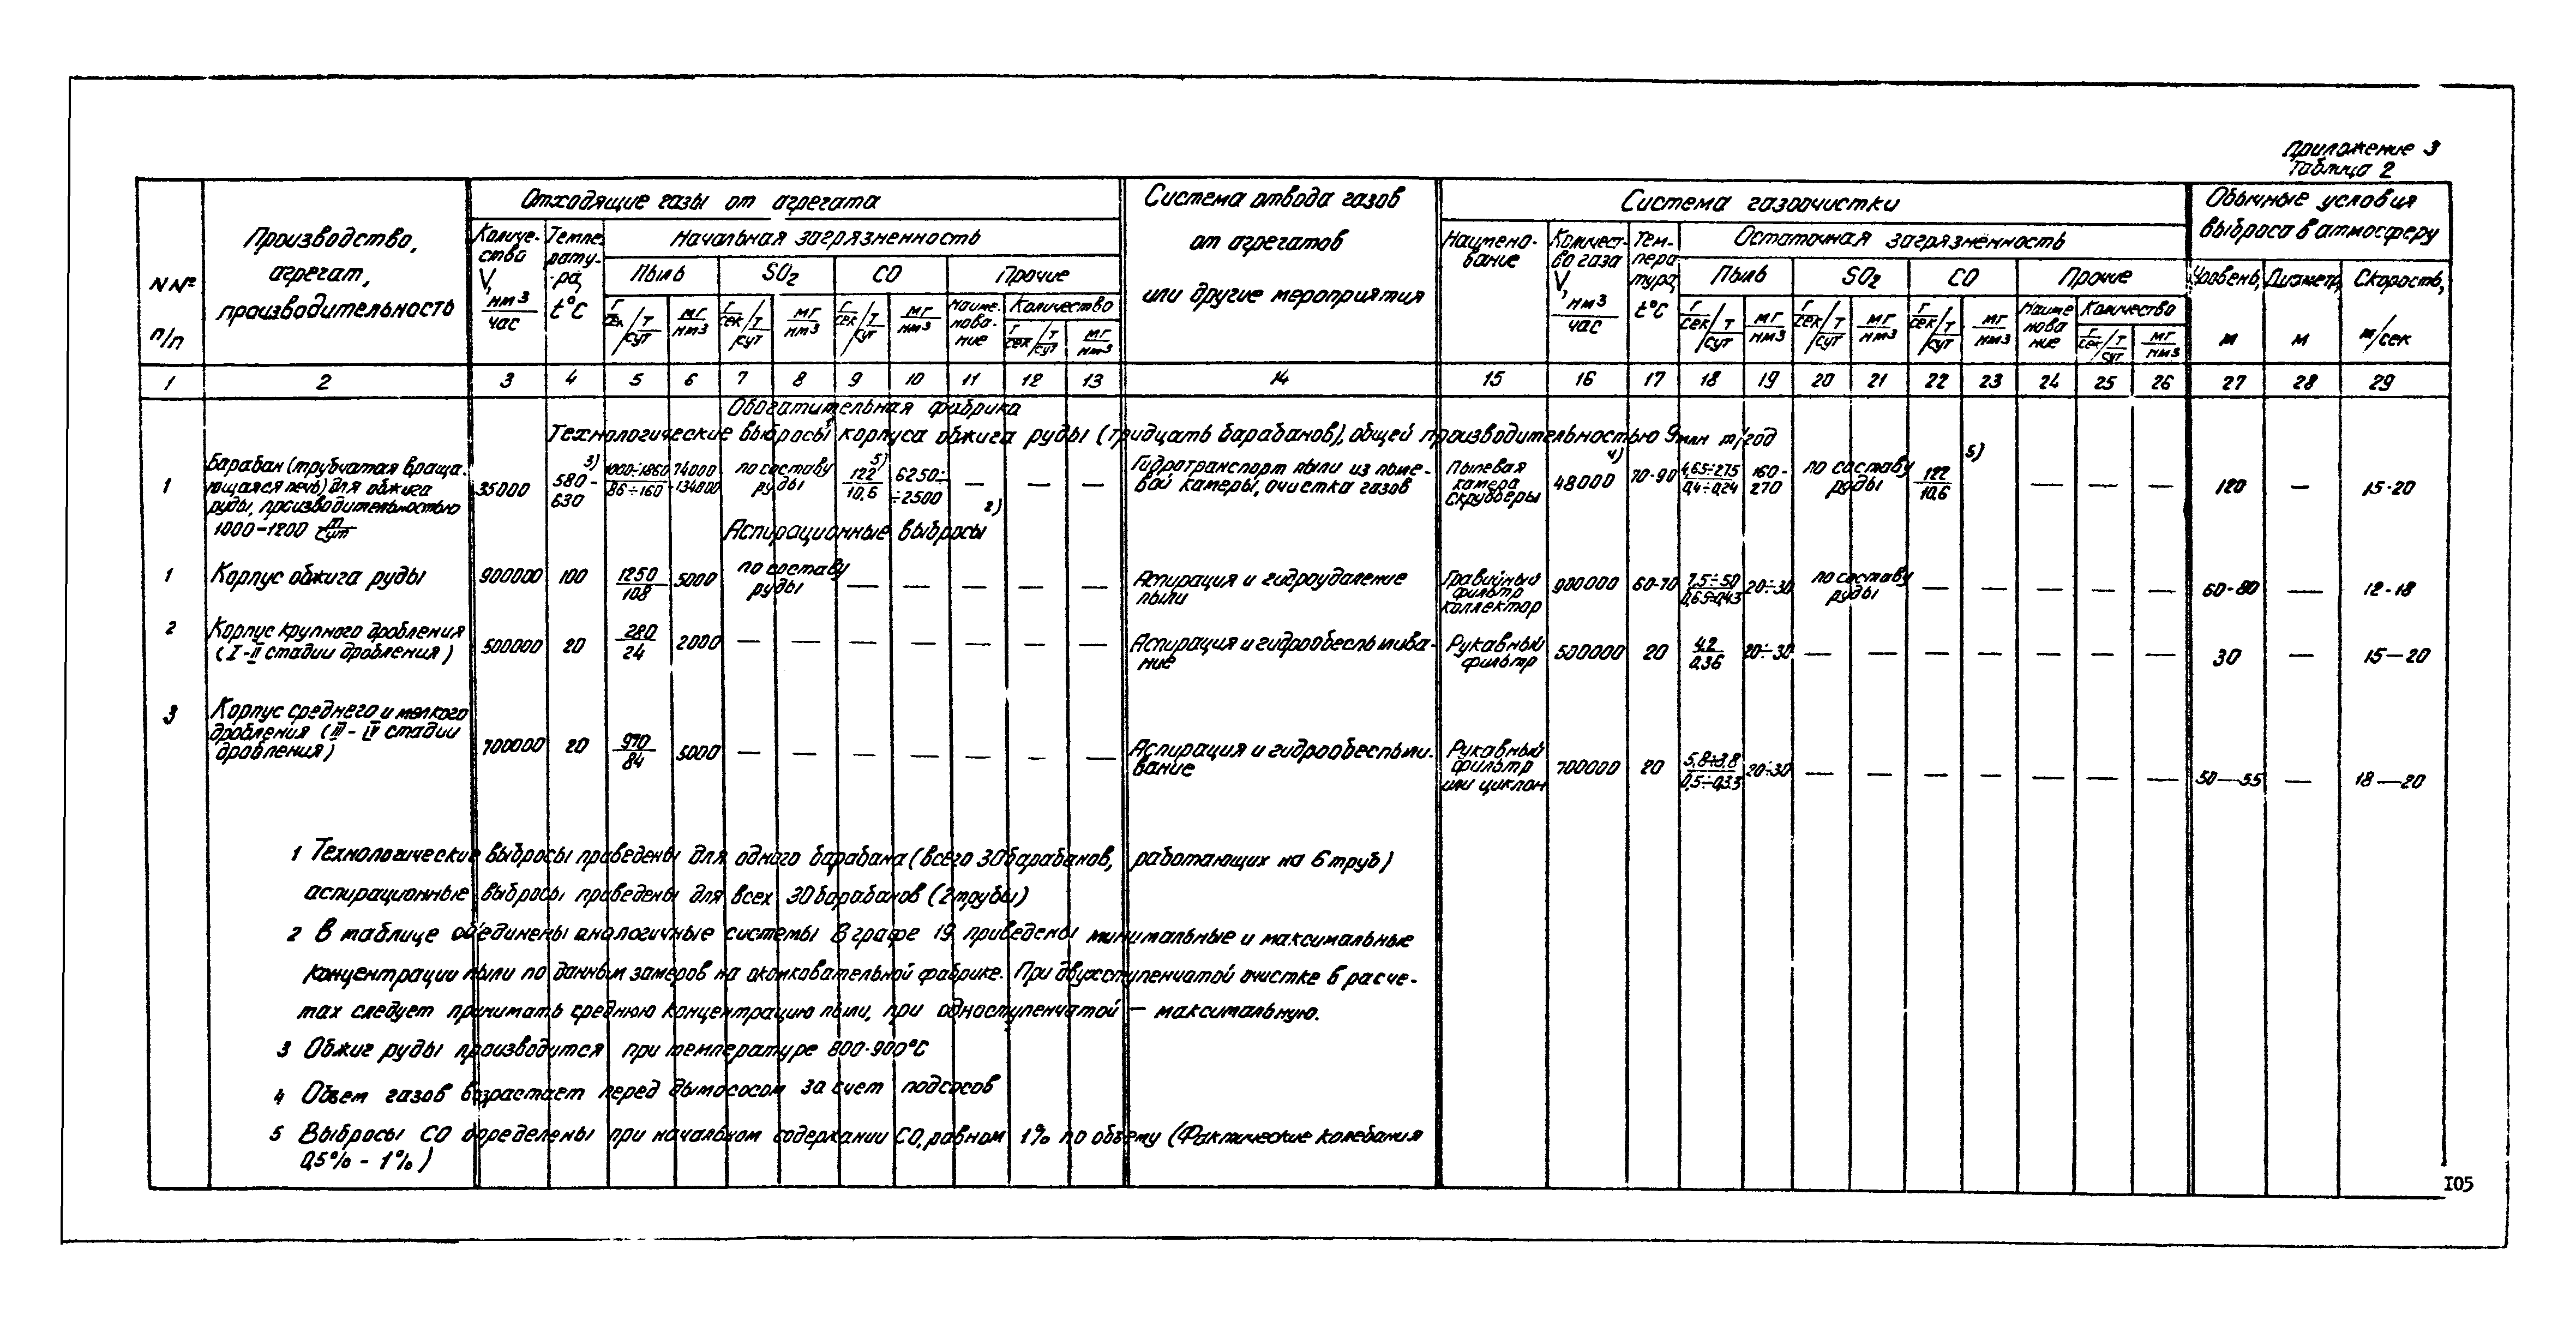 Приложение 3
Таблица 2
NNº п/п
Производство, агрегат, производительность
Отходящие газы от агрегата
Количество V, нм3/час
Температура, t°C
Начальная загрязненность
Пыль
SO2
CO
Прочие
г/сек / т/сут
мг/нм3
г/сек / т/сут
мг/нм3
г/сек / т/сут
мг/нм3
Наименование
Количество
г/сек / т/сут
мг/нм3
Система отвода газов от агрегатов или другие мероприятия
Система газоочистки
Наименование
Количество газа V, нм3/час
Температура t°C
Остаточная загрязненность
Пыль
SO2
CO
Прочие
г/сек / т/сут
мг/нм3
г/сек / т/сут
мг/нм3
г/сек / т/сут
мг/нм3
Наименование
Количество
г/сек / т/сут
мг/нм3
Обычные условия выброса в атмосферу
Уровень, м
Диаметр, м
Скорость, м/сек
1 2 3 4 5 6 7 8 9 10 11 12 13 14 15 16 17 18 19 20 21 22 23 24 25 26 27 28 29
Обогатительная фабрика
Технологические выбросы корпуса обжига руды (тридцать барабанов), общей производительностью 9 млн т/год
1 Барабан (трубчатая вращающаяся печь) для обжига руды, производительностью 1000-1200 т/сут 35000 580-630 3) 1000÷1860/86÷160 74000÷134000 по составу руды 122/10,6 5) 6250÷÷2500 — — — Гидротранспорт пыли из пылевой камеры, очистка газов Пылевая камера скрубберы 48000 4) 70-90 4,65÷2,75/0,4÷0,24 160-270 по составу руды 122/10,6 5) — — — 120 — 15-20
Аспирационные выбросы 2)
1 Корпус обжига руды 900000 100 1250/108 5000 по составу руды — — — — — Аспирация и гидроудаление пыли Гравийный фильтр коллектор 900000 60-70 7,5÷50/0,65÷0,43 20÷30 по составу руды — — — — — 60-80 — 12-18
2 Корпус крупного дробления (I-II стадии дробления) 500000 20 280/24 2000 — — — — — — — Аспирация и гидрообеспыливание Рукавный фильтр 500000 20 4,2/0,36 20÷30 — — — — — — — 30 — 15—20
3 Корпус среднего и мелкого дробления (III-IV стадии дробления) 700000 20 970/84 5000 — — — — — — — Аспирация и гидрообеспыливание Рукавный фильтр или циклон 700000 20 5,8÷3,8/0,5÷0,33 20÷30 — — — — — — — 50—55 — 18—20
1 Технологические выбросы проведены для одного барабана (всего 30 барабанов, работающих на 6 труб)
аспирационные выбросы проведены для всех 30 барабанов (2 трубы)
2 В таблице объединены аналогичные системы В графе 19 приведены минимальные и максимальные
концентрации пыли по данным замеров на окомковательной фабрике. При двухступенчатой очистке в расче-
тах следует принимать среднюю концентрацию пыли, при одноступенчатой — максимальную.
3 Обжиг руды производится при температуре 800-900°C
4 Объем газов возрастает перед дымососом за счет подсосов
5 Выбросы CO определены при начальном содержании CO, равном 1% по объему (Фактические колебания
0,5% - 1%)
105